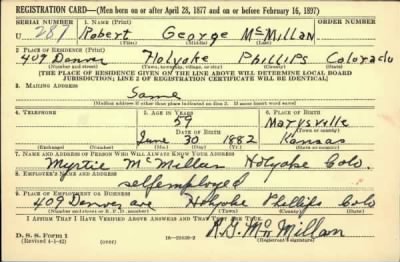 REGISTRATION CARD—(Men born on or after April 28, 1877 and on or before February 16, 1897)
SERIAL NUMBER 1. NAME (Print)
U 287 Robert George McMillan
(First) (Middle) (Last)
2. PLACE OF RESIDENCE (Print)
409 Denver Holyoke Phillips Colorado
(Number and street) (Town, township, village, or city) (County) (State)
[THE PLACE OF RESIDENCE GIVEN ON THE LINE ABOVE WILL DETERMINE LOCAL BOARD
JURISDICTION; LINE 2 OF REGISTRATION CERTIFICATE WILL BE IDENTICAL]
3. MAILING ADDRESS
Same
[Mailing address if other than place indicated on line 2. If same insert word same]
4. TELEPHONE 5. AGE IN YEARS 6. PLACE OF BIRTH
59 Marysville
DATE OF BIRTH (Town or county)
June 30 1882 Kansas
(Exchange) (Number) (Mo.) (Day) (Yr.) (State or country)
7. NAME AND ADDRESS OF PERSON WHO WILL ALWAYS KNOW YOUR ADDRESS
Myrtie McMillan Holyoke Colo.
8. EMPLOYER'S NAME AND ADDRESS
self employed
9. PLACE OF EMPLOYMENT OR BUSINESS
409 Denver ave Holyoke Phillips Colo
(Number and street or R. F. D. number) (Town) (County) (State)
I AFFIRM THAT I HAVE VERIFIED ABOVE ANSWERS AND THAT THEY ARE TRUE.
R.G. McMillan
D. S. S. Form 1
(Revised 4-1-42) (over)